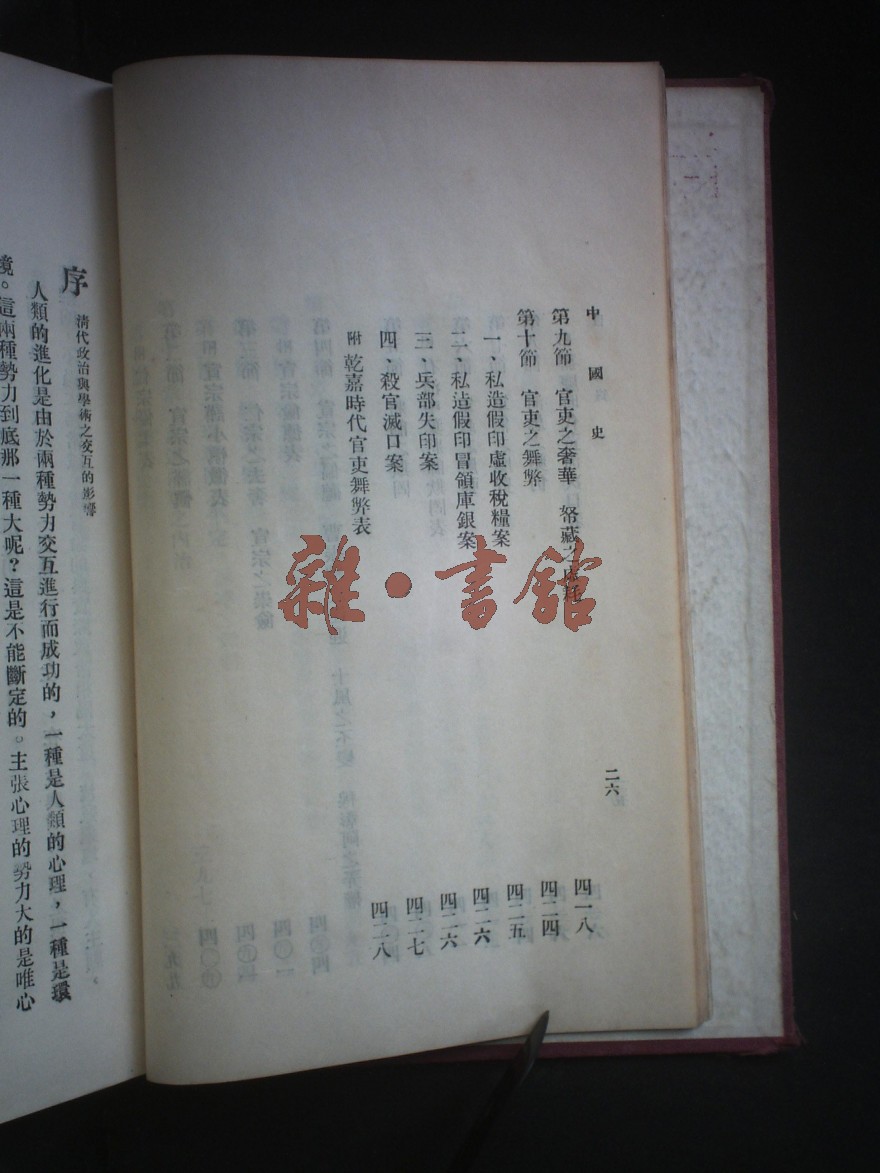 中國史
二六
第九節 官吏之奢華 帑藏之虛耗 四一八
第十節 官吏之舞弊 四二四
一、私造假印虛收稅糧案 四二五
二、私造假印冒領庫銀案 四二六
三、兵部失印案 四二六
四、殺官滅口案 四二七
附 乾嘉時代官吏舞弊表 四二八
雜·書館
序 清代政治與學術之交互的影響
人類的進化是由於兩種勢力交互進行而成功的，一種是人類的心理，一種是環
境。這兩種勢力到底那一種大呢？這是不能斷定的。主張心理的勢力大的是唯心